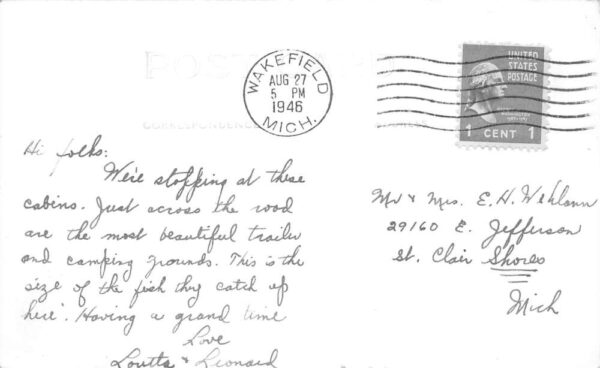 POST
WAKEFIELD
AUG 27
5 PM
1946
MICH.
UNITED
STATES
POSTAGE
1 CENT 1
CORRESPONDENCE
Hi folks:
We're stopping at these
cabins. Just across the road
are the most beautiful trailer
and camping grounds. This is the
size of the fish they catch up
here! Having a grand time
Love
Loutta & Leonard
Mr & Mrs. E. H. Wehlann
29160 E. Jefferson
St. Clair Shores
Mich